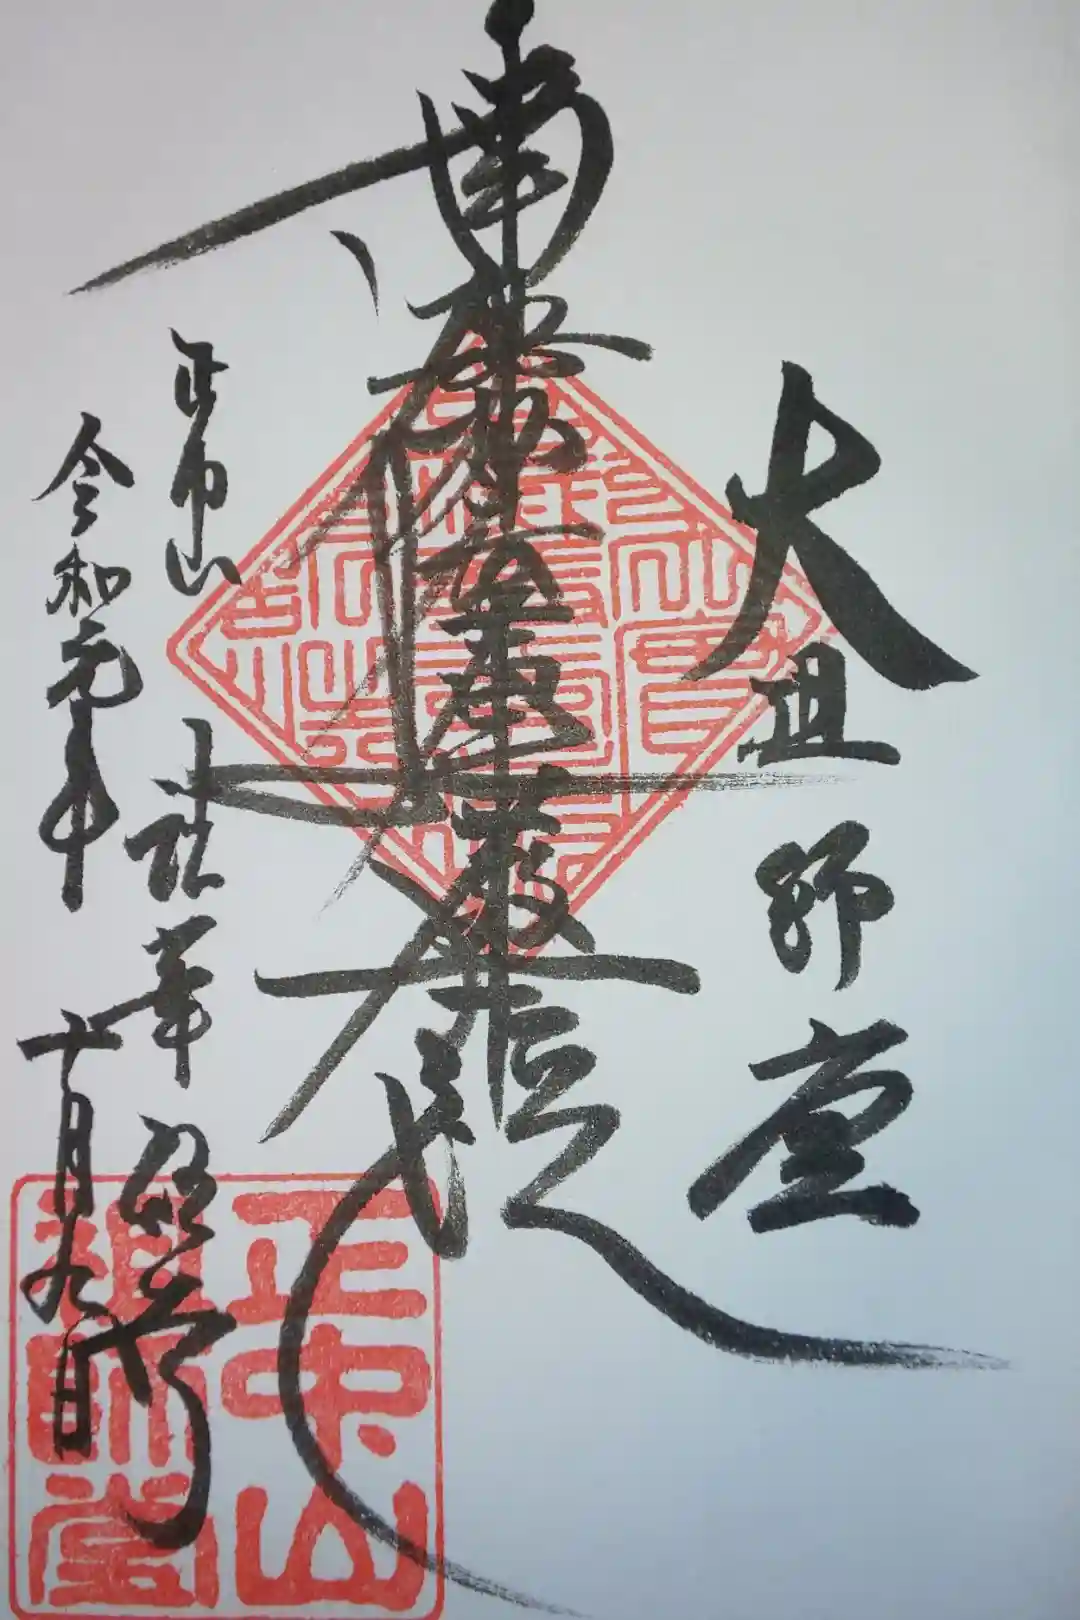 大祖師堂
南無妙法蓮華経
正中山 法華経寺
令和元年 十月九日
正中山
祖師堂